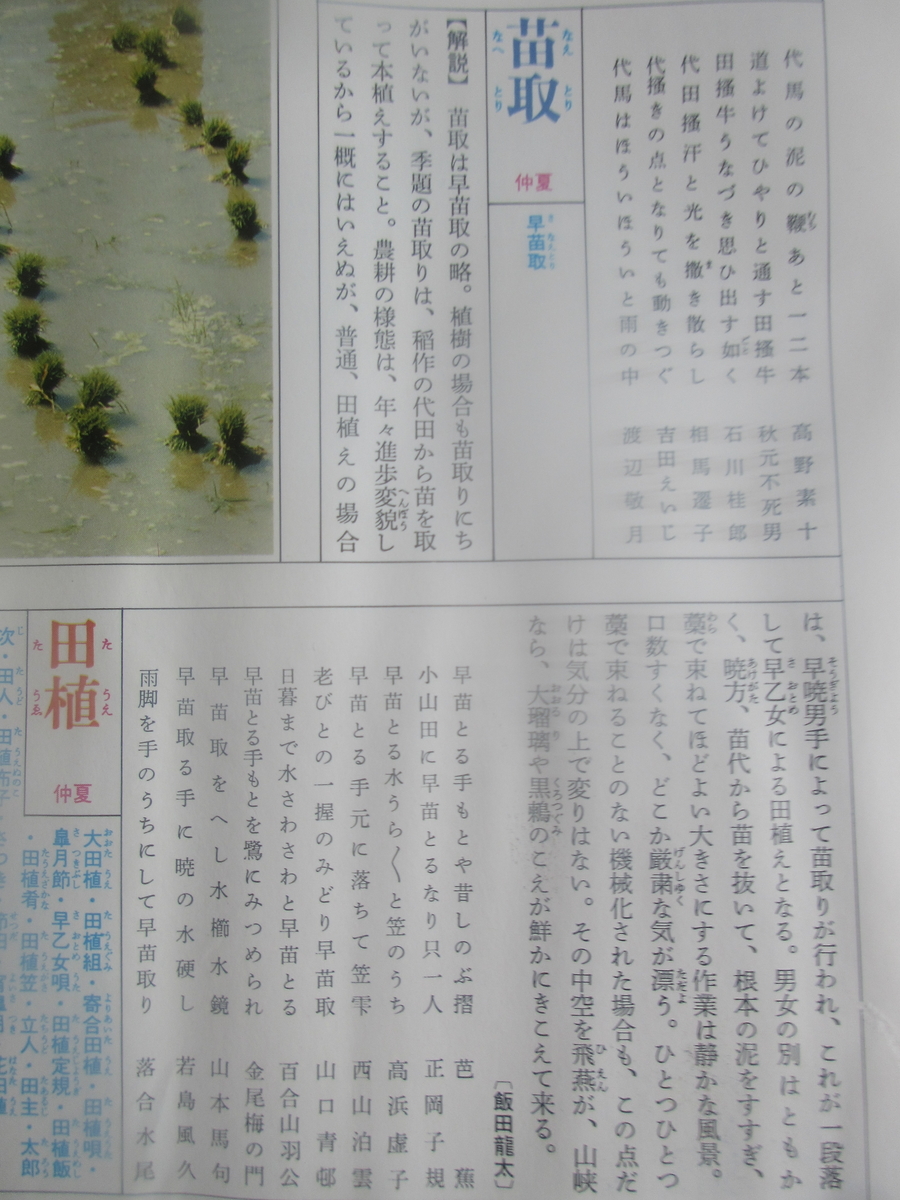 代馬の泥の鞭あと一二本　高野素十
道よけてひやりと通す田掻牛　秋元不死男
田掻牛うなづき思ひ出す如く　石川桂郎
代田掻汗と光を撒き散らし　相馬遷子
代掻きの点となりても動きつぐ　吉田えいじ
代馬はほういほういと雨の中　渡辺敬月
苗取
仲夏
早苗取
【解説】　苗取は早苗取の略。植樹の場合も苗取りにち
がいないが、季題の苗取りは、稲作の代田から苗を取
って本植えすること。農耕の様態は、年々進歩変貌し
ているから一概にはいえぬが、普通、田植えの場合
は、早暁男手によって苗取りが行われ、これが一段落
して早乙女による田植えとなる。男女の別はともか
く、暁方、苗代から苗を抜いて、根本の泥をすすぎ、
藁で束ねてほどよい大きさにする作業は静かな風景。
口数すくなく、どこか厳粛な気が漂う。ひとつひとつ
藁で束ねることのない機械化された場合も、この点だ
けは気分の上で変りはない。その中空を飛燕が、山峡
なら、大瑠璃や黒鶫のこえが鮮かにきこえて来る。
〔飯田龍太〕
早苗とる手もとや昔しのぶ摺　芭蕉
小山田に早苗とるなり只一人　正岡子規
早苗とる水うら〱と笠のうち　高浜虚子
早苗とる手元に落ちて笠雫　西山泊雲
老びとの一握のみどり早苗取　山口青邨
日暮まで水さわさわと早苗とる　百合山羽公
早苗とる手もとを鷺にみつめられ　金尾梅の門
早苗取をへし水櫛水鏡　山本馬句
早苗取る手に暁の水硬し　若島風久
雨脚を手のうちにして早苗取り　落合水尾
田植
仲夏
大田植・田植組・寄合田植・田植唄・
皐月節・早乙女唄・田植定規・田植飯
・田植肴・田植笠・立人・田主・太郎
次・田人・田植布子・さつき